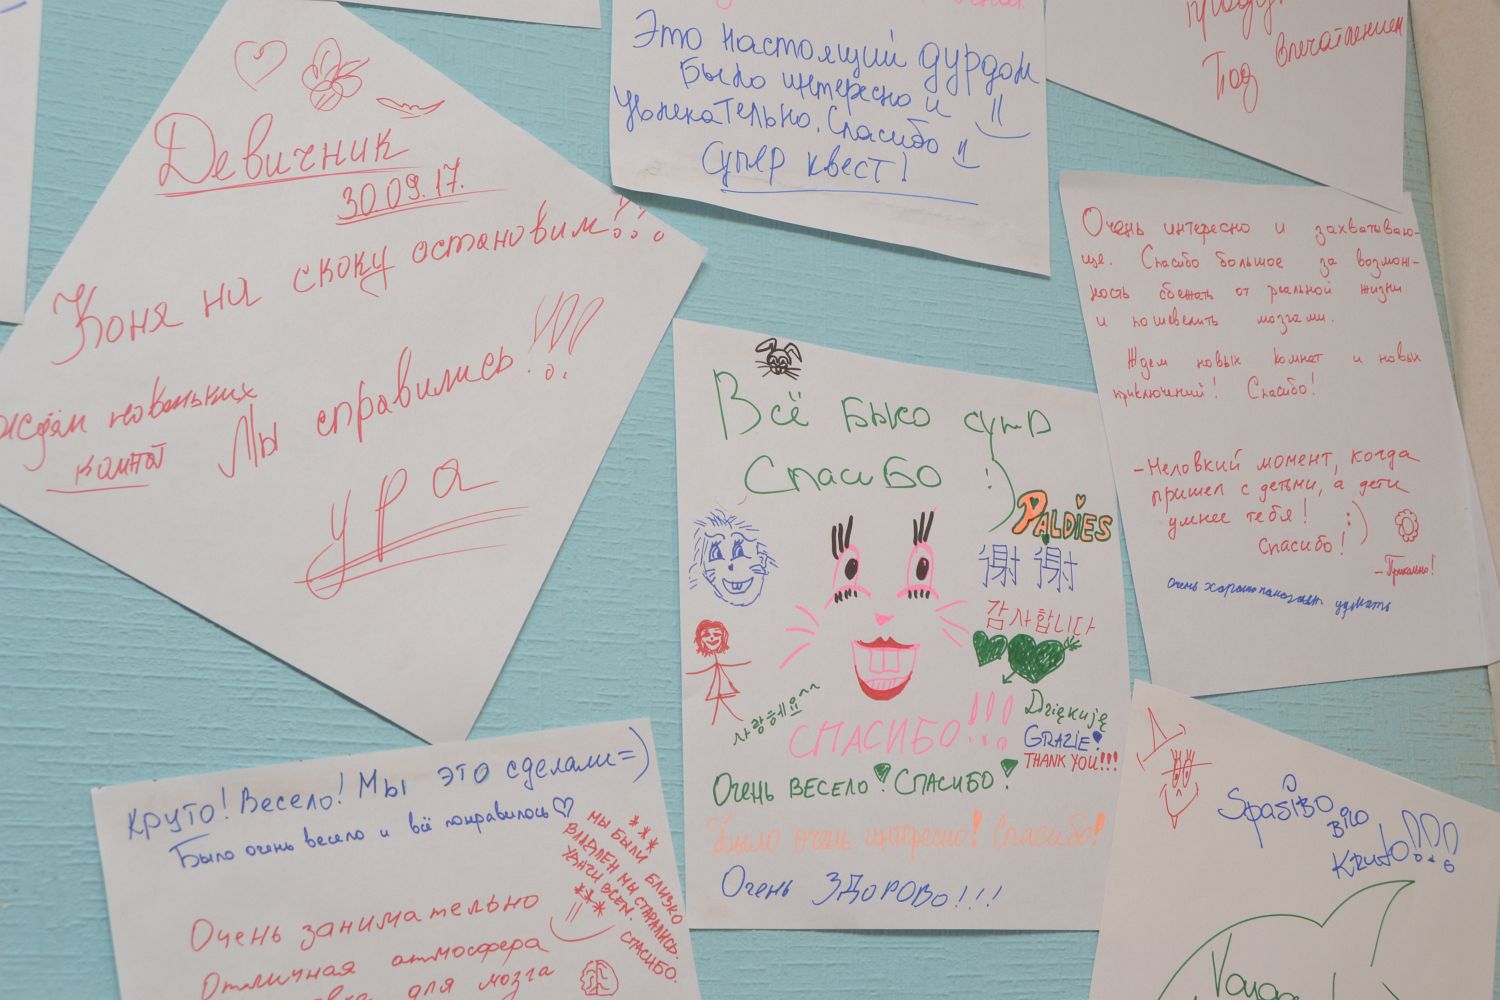 Девичник
30.09.17.
Коня на скоку остановим!!!
Мы справились!!!
ждём новеньких
комнат
ура
Это настоящий дурдом
Было интересно и
увлекательно. Спасибо
супер квест!
Под впечатлением
Очень интересно и захватываю-
ще. Спасибо большое за возмож-
ность сбежать от реальной жизни
и пошевелить мозгами.
Ждем новых комнат и новых
приключений! Спасибо!
- Неловкий момент, когда
пришел с детьми, а дети
умнее тебя! :)
Спасибо!
- Прикольно!
очень хорошо помогает думать
Всё было супер
Спасибо :)
PALDIES
謝謝
감사합니다
사랑헤요^^
СПАСИБО!!!
Dziękuję
GRAZIE!
THANK YOU!!!
Очень весело! Спасибо!
Было очень интересно! Спасибо!
Очень ЗДОРОВО!!!
Круто! Весело! Мы это сделали=)
Было очень весело и всё понравилось♡
***
МЫ БЫЛИ БЛИЗКО
МЫ СТАРАЛИСЬ.
ВСЕМ. СПАСИБО.
***
Очень занимательно
Отличная атмосфера
для мозга
SpasiBO
Bilo
Kruto!!!